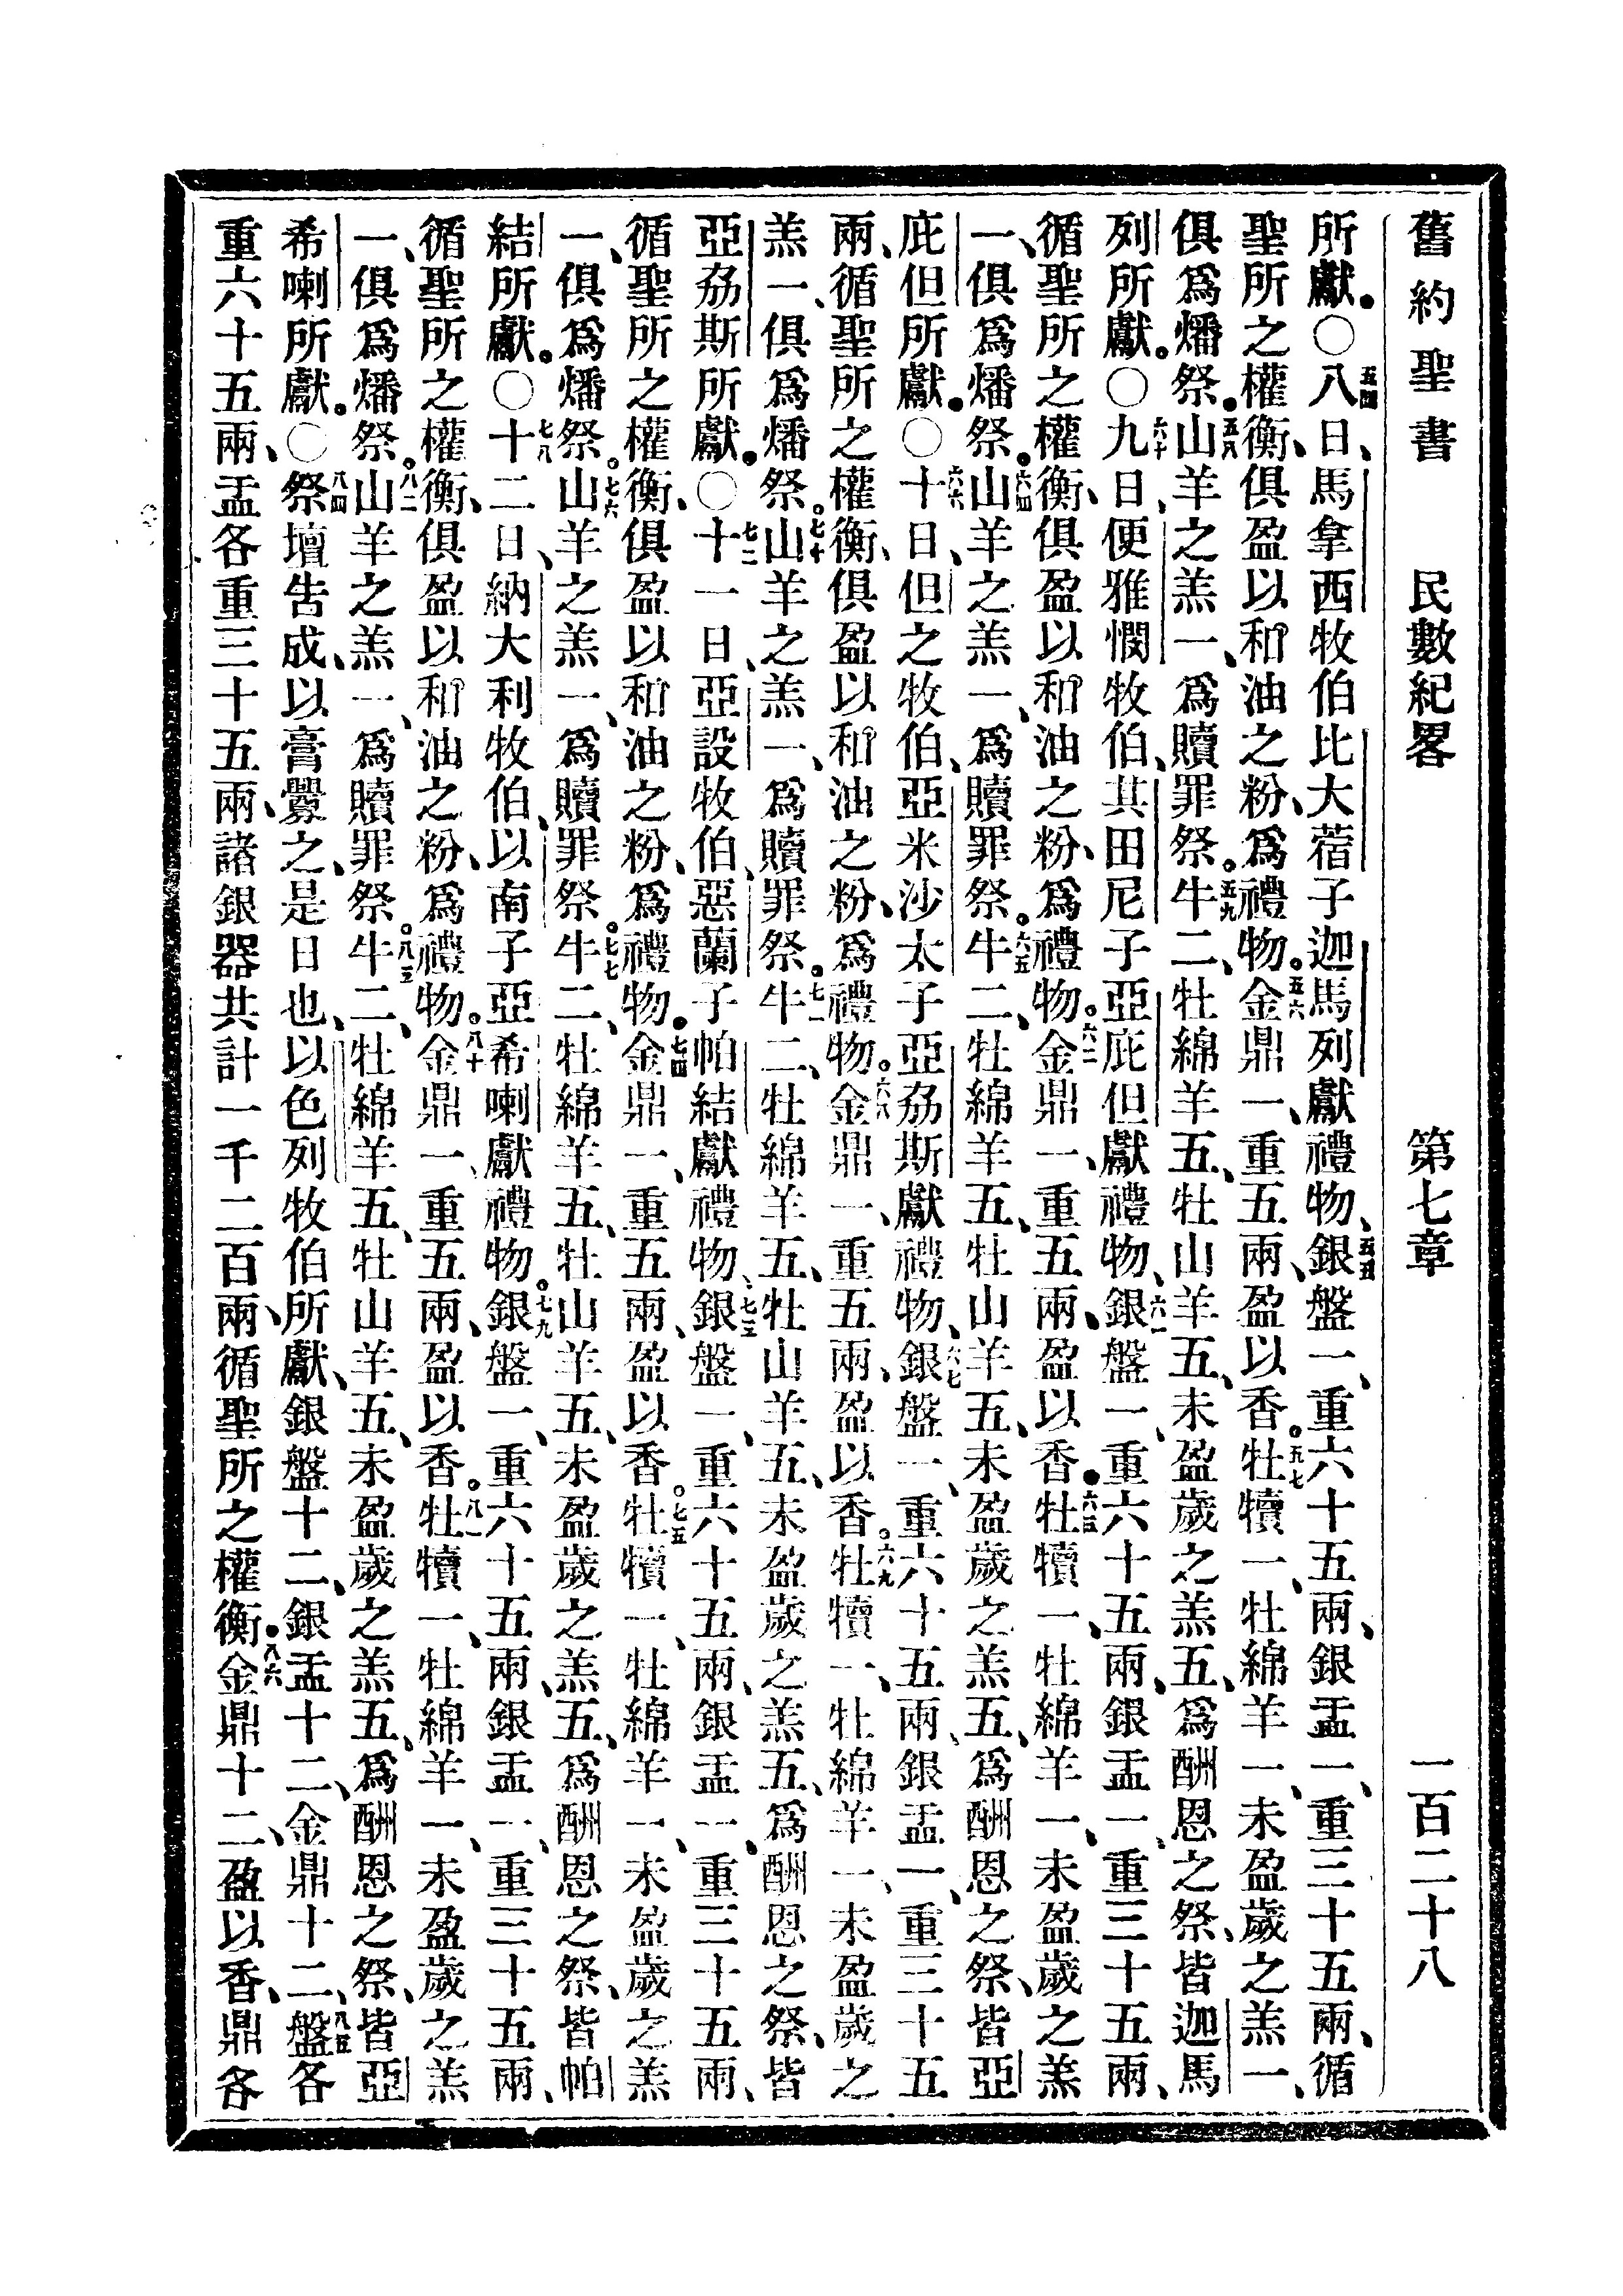 舊約聖書 民數紀畧 第七章 一百二十八
所獻。○五四八日、馬拿西牧伯比大蓿子迦馬列獻禮物、五五銀盤一、重六十五兩、銀盂一、重三十五兩、循
聖所之權衡、俱盈以和油之粉、爲禮物。五六金鼎一、重五兩、盈以香。五七牡犢一、牡綿羊一、未盈歲之羔一、
俱爲燔祭。五八山羊之羔一、爲贖罪祭。五九牛二、牡綿羊五、牡山羊五、未盈歲之羔五、爲酬恩之祭、皆迦馬
列所獻。○六十九日、便雅憫牧伯、其田尼子亞庇但獻禮物、六一銀盤一、重六十五兩、銀盂一、重三十五兩、
循聖所之權衡、俱盈以和油之粉、爲禮物。六二金鼎一、重五兩、盈以香。六三牡犢一、牡綿羊一、未盈歲之羔
一、俱爲燔祭。六四山羊之羔一、爲贖罪祭。六五牛二、牡綿羊五、牡山羊五、未盈歲之羔五、爲酬恩之祭、皆亞
庇但所獻。○六六十日、但之牧伯、亞米沙太子亞劦斯獻禮物、六七銀盤一、重六十五兩、銀盂一、重三十五
兩、循聖所之權衡、俱盈以和油之粉、爲禮物。六八金鼎一、重五兩、盈以香。六九牡犢一、牡綿羊一、未盈歲之
羔一、俱爲燔祭。七十山羊之羔一、爲贖罪祭。七一牛二、牡綿羊五、牡山羊五、未盈歲之羔五、爲酬恩之祭、皆
亞劦斯所獻。○七二十一日、亞設牧伯、惡蘭子帕結獻禮物、七三銀盤一、重六十五兩、銀盂一、重三十五兩、
循聖所之權衡、俱盈以和油之粉、爲禮物。七四金鼎一、重五兩、盈以香。七五牡犢一、牡綿羊一、未盈歲之羔
一、俱爲燔祭。七六山羊之羔一、爲贖罪祭。七七牛二、牡綿羊五、牡山羊五、未盈歲之羔五、爲酬恩之祭、皆帕
結所獻。○七八十二日、納大利牧伯、以南子亞希喇獻禮物。七九銀盤一、重六十五兩、銀盂一、重三十五兩、
循聖所之權衡、俱盈以和油之粉、爲禮物。八十金鼎一、重五兩、盈以香。八一牡犢一、牡綿羊一、未盈歲之羔
一、俱爲燔祭。八二山羊之羔一、爲贖罪祭。八三牛二、牡綿羊五、牡山羊五、未盈歲之羔五、爲酬恩之祭、皆亞
希喇所獻。○八四祭壇吿成、以膏釁之、是日也、以色列牧伯所獻、銀盤十二、銀盂十二、金鼎十二、八五盤各
重六十五兩、盂各重三十五兩、諸銀器共計一千二百兩、循聖所之權衡。八六金鼎十二、盈以香、鼎各